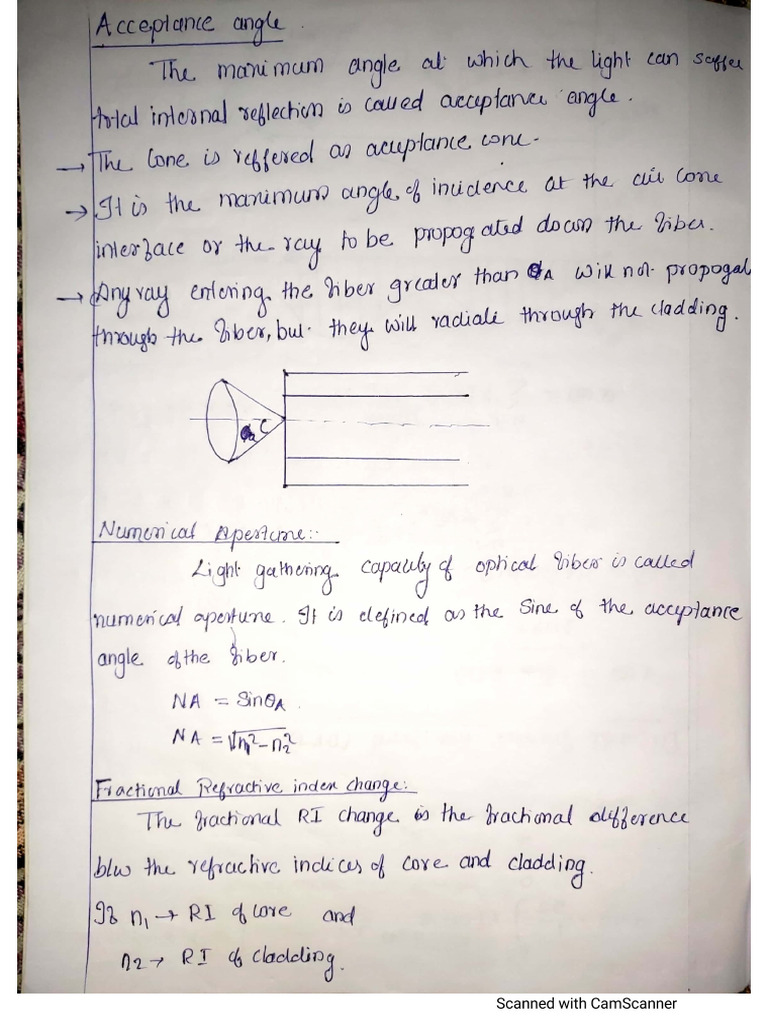 Acceptance angle.
The maximum angle at which the light can suffer
total internal reflection is called acceptance angle.
→ The Cone is reffered as acceptance cone.
→ It is the maximum angle of incidence at the air core
interface or the ray to be propogated down the fiber.
→ Any ray entering the fiber greater than θA will not propogat
through the fiber, but they will radiate through the cladding.
Numerical Aperture:-
Light gathering capacity of optical fiber is called
numerical aperture. It is defined as the Sine of the acceptance
angle of the fiber.
NA = SinθA.
NA = √n1²-n2²
Fractional Refractive index change:
The fractional RI change is the fractional difference
b/w the refractive indices of core and cladding.
If n1 → RI of core and
n2 → RI of cladding.
Scanned with CamScanner